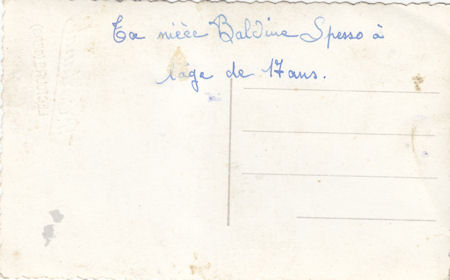 Ta nièce Baldine Spesso à
l'âge de 17 ans.